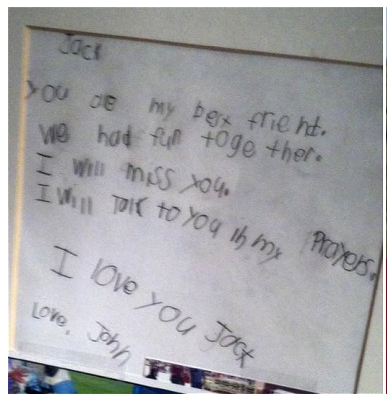 Jack
You are my best friend.
We had fun together.
I will miss you.
I will talk to you in my Prayers.
I love you Jack
Love, John